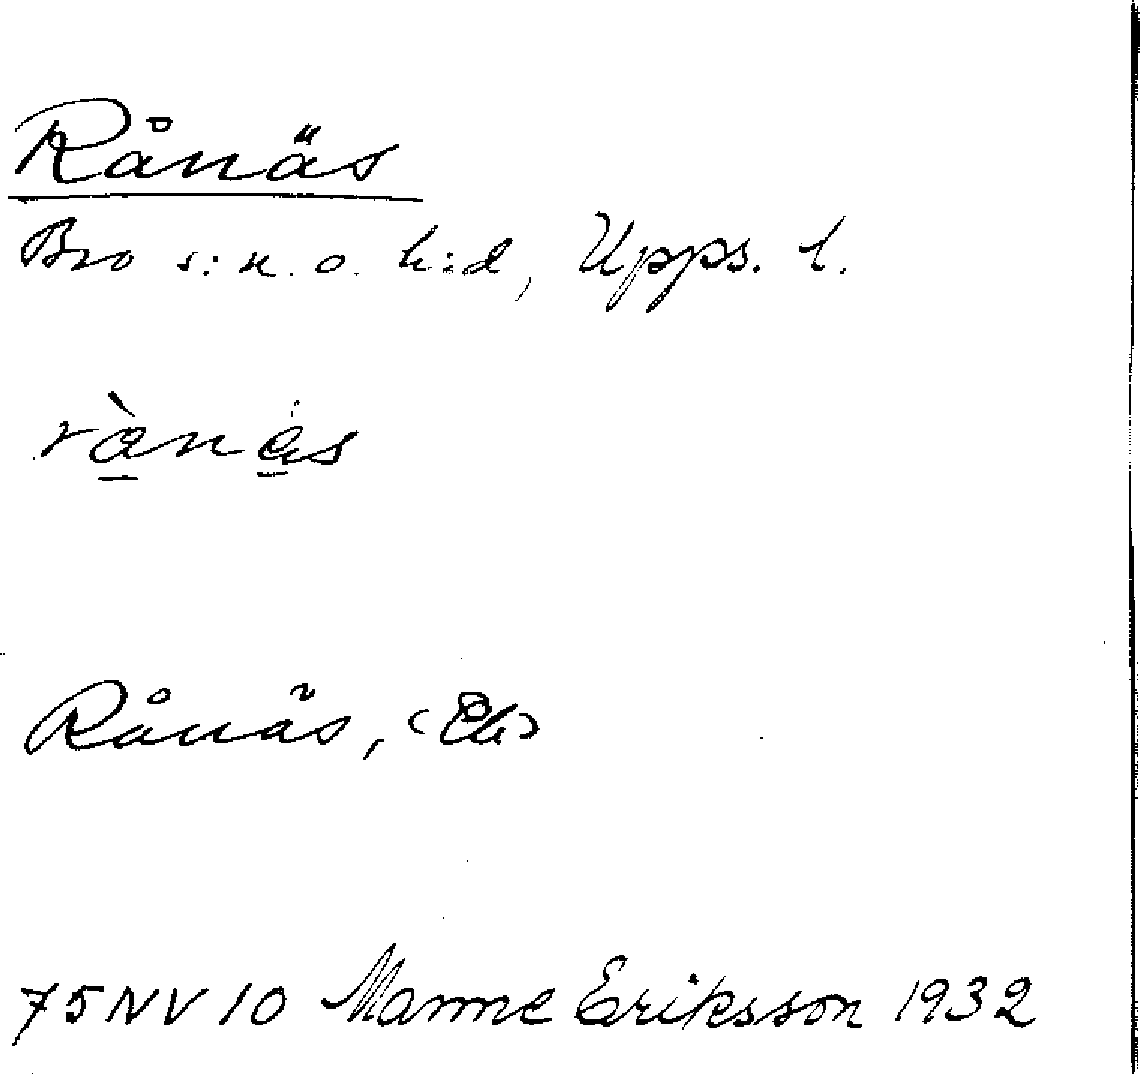 Rånäs
Bro s:n o. h:d, Upps. l.
rànás
Rånäs, (Ek)
75 NV 10 Manne Eriksson 1932